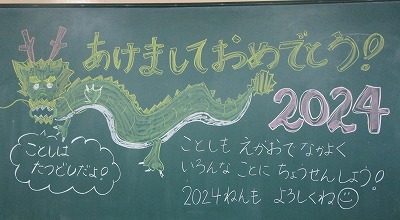 あけましておめでとう!
2024
ことしは
たつどしだよ!
ことしも えがおで なかよく
いろんな ことに ちょうせんしよう!
2024ねんも よろしくね